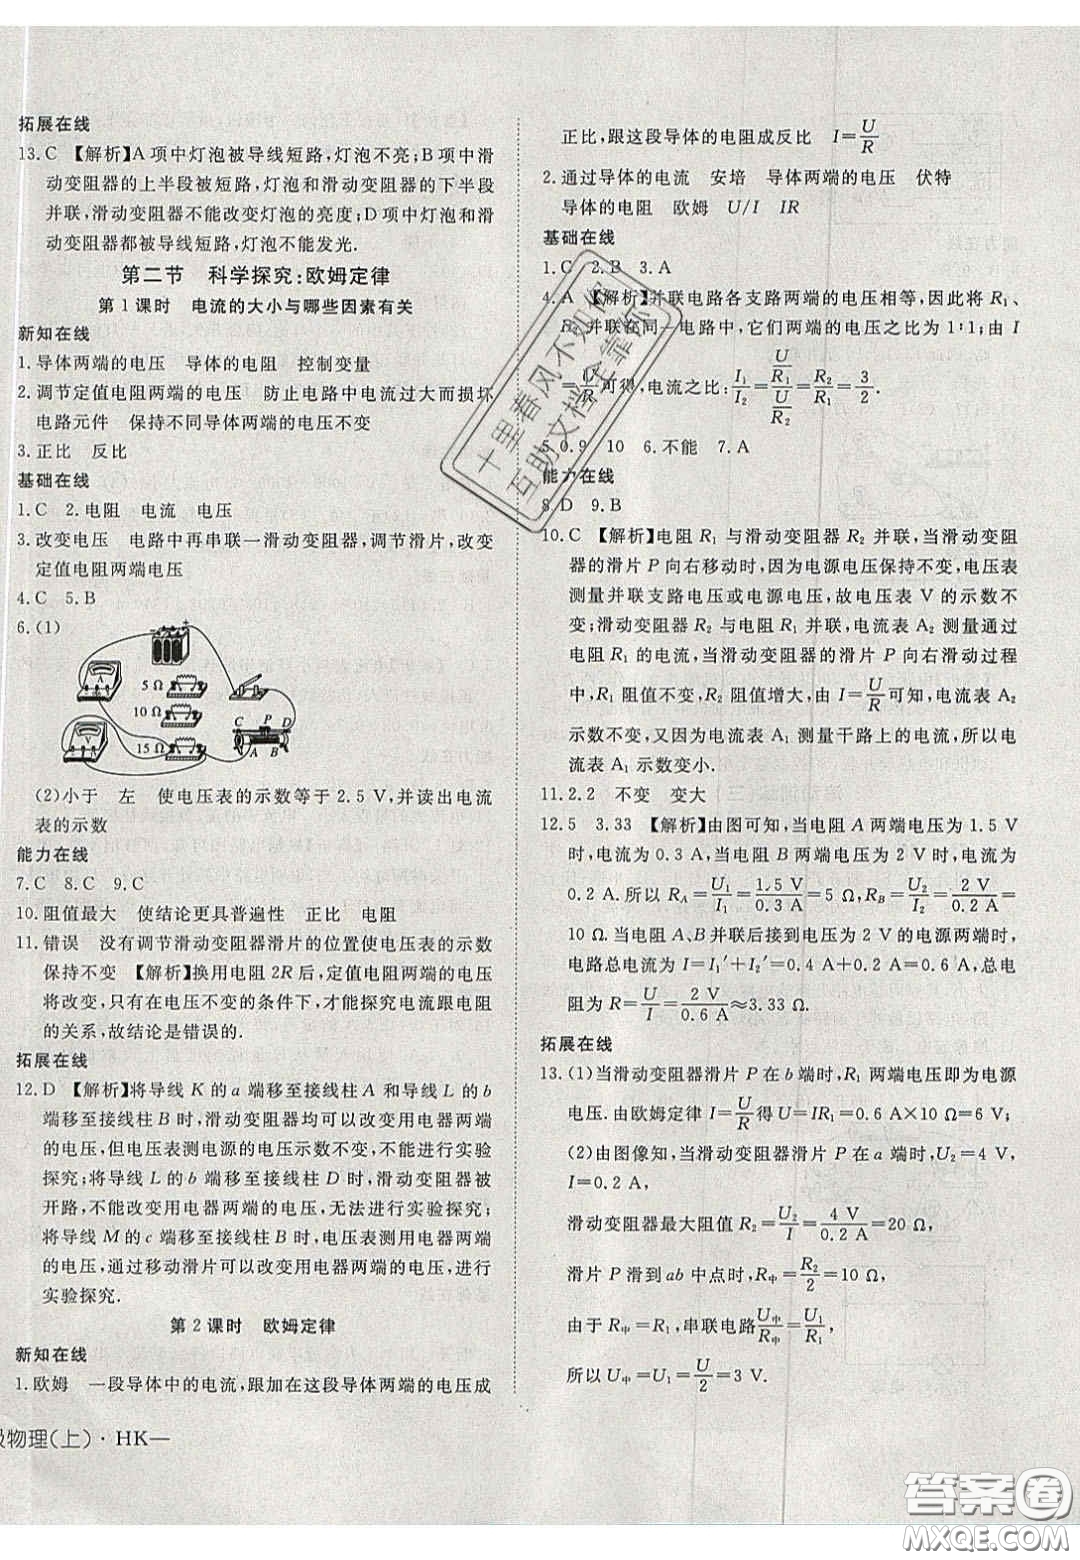 拓展在线
13.C 【解析】A项中灯泡被导线短路,灯泡不亮;B项中滑
动变阻器的上半段被短路,灯泡和滑动变阻器的下半段
并联,滑动变阻器不能改变灯泡的亮度;D项中灯泡和滑
动变阻器都被导线短路,灯泡不能发光.
第二节 科学探究:欧姆定律
第1课时 电流的大小与哪些因素有关
新知在线
1.导体两端的电压 导体的电阻 控制变量
2.调节定值电阻两端的电压 防止电路中电流过大而损坏
电路元件 保持不同导体两端的电压不变
3.正比 反比
基础在线
1.C 2.电阻 电流 电压
3.改变电压 电路中再串联一滑动变阻器,调节滑片,改变
定值电阻两端电压
4.C 5.B
6.(1)
- +
A
5 Ω
10 Ω
15 Ω
V
C P D
A B
(2)小于 左 使电压表的示数等于2.5 V,并读出电流
表的示数
能力在线
7.C 8.C 9.C
10.阻值最大 使结论更具普遍性 正比 电阻
11.错误 没有调节滑动变阻器滑片的位置使电压表的示数
保持不变 【解析】换用电阻2R后,定值电阻两端的电压
将改变,只有在电压不变的条件下,才能探究电流跟电阻
的关系,故结论是错误的.
拓展在线
12.D 【解析】将导线K的a端移至接线柱A和导线L的b
端移至接线柱B时,滑动变阻器均可以改变用电器两端
的电压,但电压表测电源的电压示数不变,不能进行实验
探究;将导线L的b端移至接线柱D时,滑动变阻器被
开路,不能改变用电器两端的电压,无法进行实验探究;
将导线M的c端移至接线柱B时,电压表测用电器两端
的电压,通过移动滑片可以改变用电器两端的电压,进行
实验探究.
第2课时 欧姆定律
新知在线
1.欧姆 一段导体中的电流,跟加在这段导体两端的电压成
级物理(上)·HK—
正比,跟这段导体的电阻成反比 I=U/R
2.通过导体的电流 安培 导体两端的电压 伏特
导体的电阻 欧姆 U/I IR
基础在线
1.C 2.B 3.A
4.A 【解析】并联电路各支路两端的电压相等,因此将R₁、
R₂并联在同一电路中,它们两端的电压之比为1:1;由I
=U/R可得,电流之比:I₁/I₂=(U/R₁)/(U/R₂)=R₂/R₁=3/2.
5.0.9 10 6.不能 7.A
能力在线
8.D 9.B
10.C 【解析】电阻R₁与滑动变阻器R₂并联,当滑动变阻
器的滑片P向右移动时,因为电源电压保持不变,电压表
测量并联支路电压或电源电压,故电压表V的示数不
变;滑动变阻器R₂与电阻R₁并联,电流表A₂测量通过
电阻R₁的电流,当滑动变阻器的滑片P向右滑动过程
中,R₁阻值不变,R₂阻值增大,由I=U/R可知,电流表A₂
示数不变,又因为电流表A₁测量干路上的电流,所以电
流表A₁示数变小.
11.2.2 不变 变大
12.5 3.33 【解析】由图可知,当电阻A两端电压为1.5 V
时,电流为0.3 A,当电阻B两端电压为2 V时,电流为
0.2 A.所以R_A=U₁/I₁=1.5 V/0.3 A=5 Ω,R_B=U₂/I₂=2 V/0.2 A=
10 Ω.当电阻A、B并联后接到电压为2 V的电源两端时,
电路总电流为I=I₁′+I₂′=0.4 A+0.2 A=0.6 A,总电
阻为R=U/I=2 V/0.6 A≈3.33 Ω.
拓展在线
13.(1)当滑动变阻器滑片P在b端时,R₁两端电压即为电源
电压.由欧姆定律I=U/R得U=IR₁=0.6 A×10 Ω=6 V;
(2)由图像知,当滑动变阻器滑片P在a端时,U₂=4 V,
I=0.2 A,
滑动变阻器最大阻值R₂=U₂/I=4 V/0.2 A=20 Ω,
滑片P滑到ab中点时,R中=R₂/2=10 Ω,
由于R中=R₁,串联电路U中/R中=U₁/R₁,
所以U中=U₁=U/2=3 V.
十里春风不如你
互助文档全靠你
答案卷
MXQE.COM